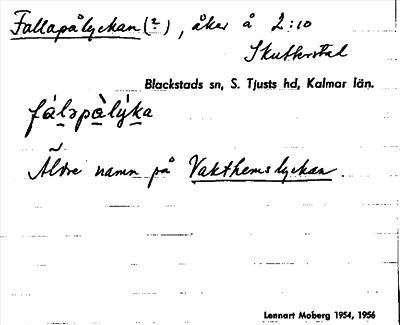 Fallapålyckan (?), åker å 2:10
Skutterstal
Blackstads sn, S. Tjusts hd, Kalmar län.
fáləpàlýka
Äldre namn på Vakthemslyckan.
Lennart Moberg 1954, 1956